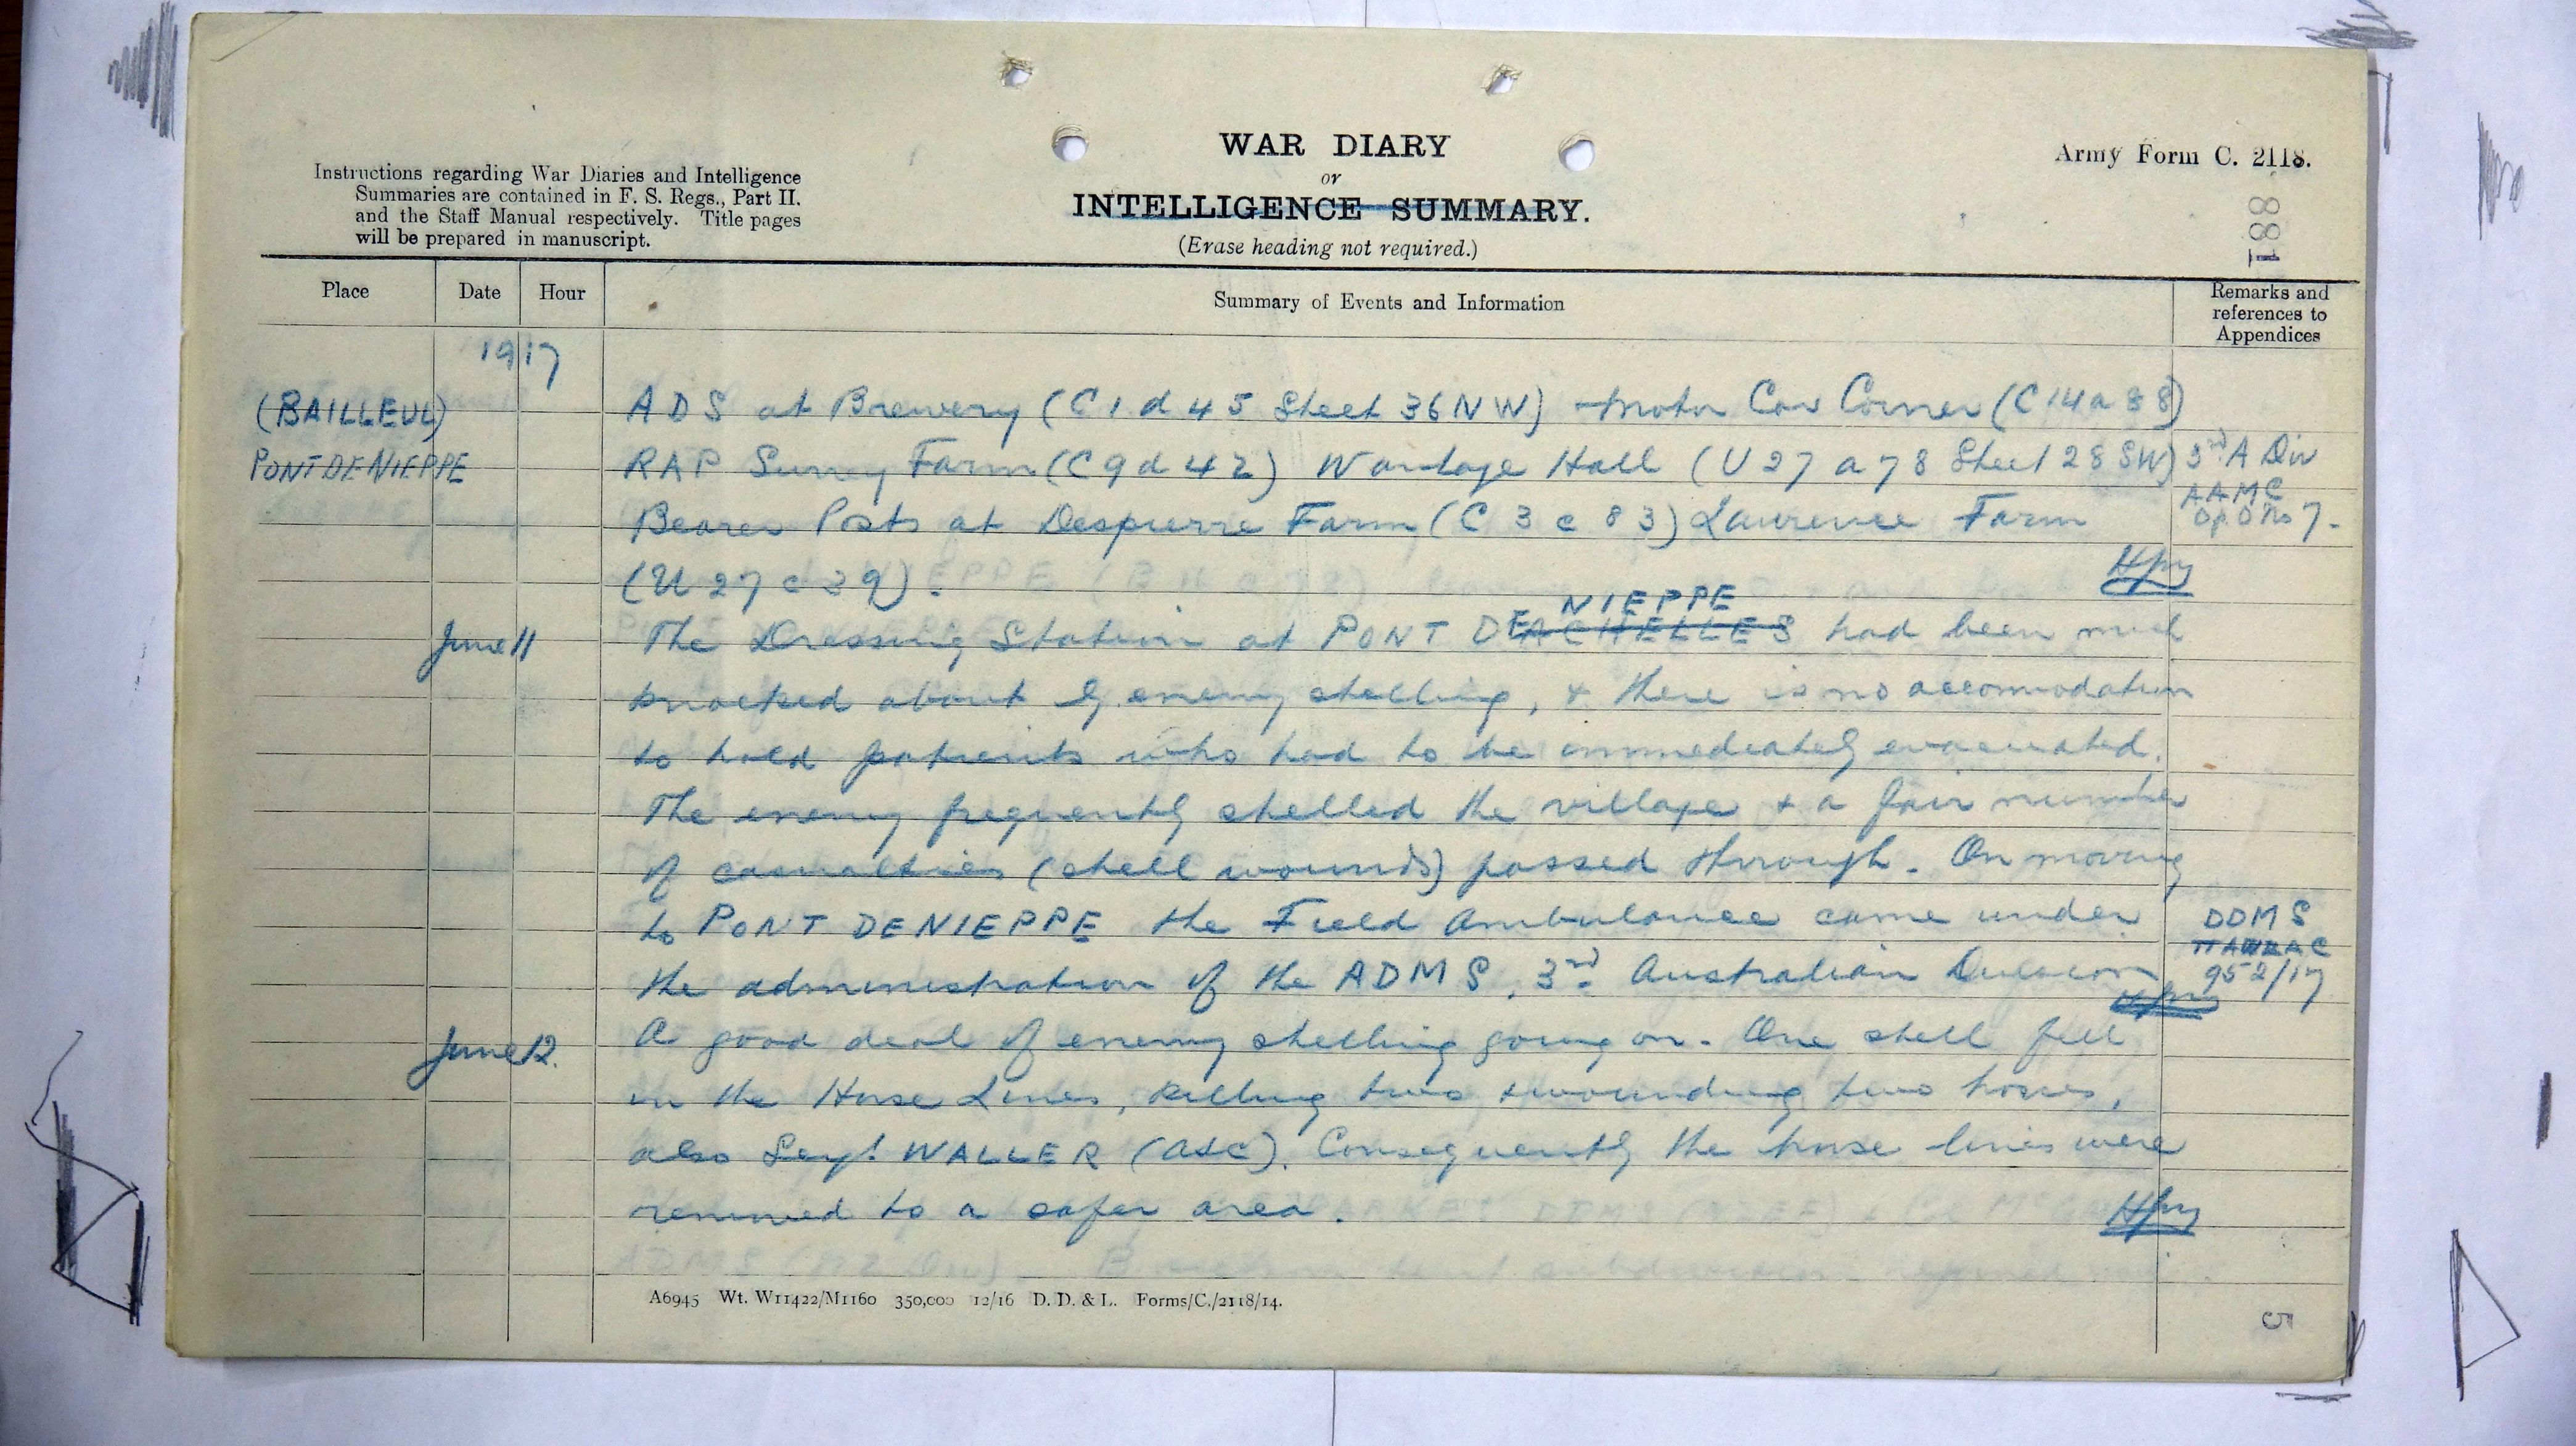 WAR DIARY
or
INTELLIGENCE SUMMARY.
(Erase heading not required.)
Instructions regarding War Diaries and Intelligence
Summaries are contained in F. S. Regs., Part II.
and the Staff Manual respectively. Title pages
will be prepared in manuscript.
Army Form C. 2118.
881
Place Date Hour Summary of Events and Information Remarks and references to Appendices
1917
(BAILLEUL) ADS at Brewery (C 1 d 45 Sheet 36 NW) Motor Car Corner (C 14 a 88)
PONT DE NIEPPE RAP Surrey Farm (C 9 d 42) Wantage Hall (U 27 a 78 Sheet 28 SW) 3rd A Div
AAMC
Op. O No 7.
Bearer Posts at Despierre Farm (C 3 c 83) Laurence Farm
(U 27 c 39). Hpy
NIEPPE
June 11 The Dressing Station at PONT DE ACHELLES had been much
knocked about by enemy shelling, & there is no accommodation
to hold patients who had to be immediately evacuated.
The enemy frequently shelled the village & a fair number
of casualties (shell wounds) passed through. On moving
to PONT DE NIEPPE the Field Ambulance came under DDMS
the administration of the ADMS, 3rd Australian Division 952/17
June 12. A good deal of enemy shelling going on. One shell fell
in the Horse Lines, killing two & wounding two horses,
also Sergt WALLER (ASC). Consequently the horse lines were
removed to a safer area. Hpy
A6945 Wt. W11422/M1160 350,000 12/16 D. D. & L. Forms/C./2118/14.
5